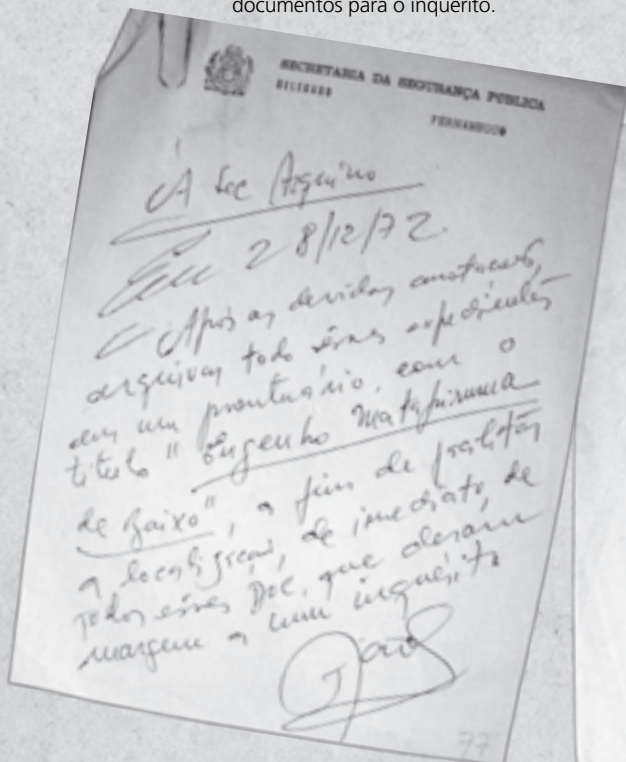 documentos para o inquérito.
SECRETARIA DA SEGURANÇA PÚBLICA
PERNAMBUCO
À Sec Arquivo
Em 28/12/72.
Após as devidas anotações,
arquivar todo esses expedientes
em um prontuário, com o
título "Engenho Matapiruma
de Baixo", a fim de facilitar
a localização, de imediato, de
todos esses Doc, que deram
margem a um inquérito
77